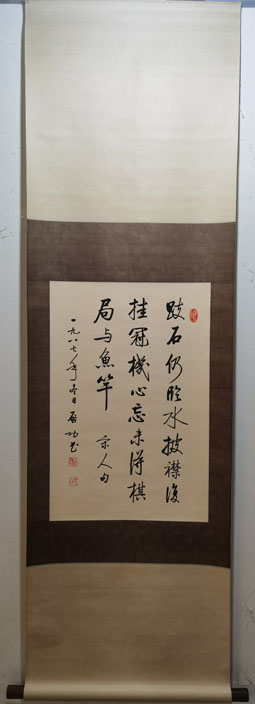 跂石仍臨水披襟復
挂冠機心忘未得棋
局與魚竿 宋人句
一九八七年冬日 启功书